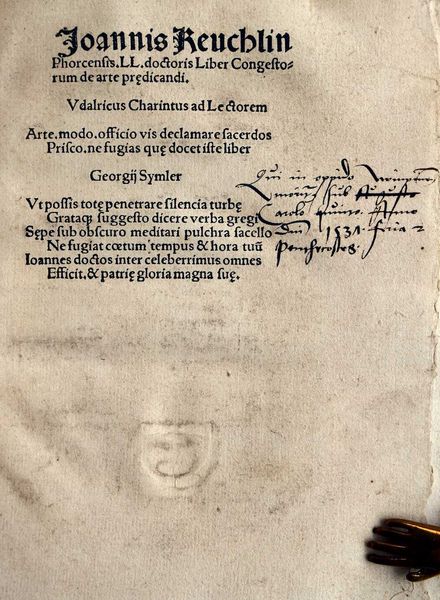 Joannis Reuchlin
Phorcensis. LL. doctoris Liber Congesto-
rum de arte prędicandi.
Vdalricus Charintus ad Lectorem
Arte. modo. officio vis declamare sacerdos
Prisco. ne fugias quę docet iste liber
Georgij Symler
Vt possis totę penetrare silencia turbę
Grataq; suggesto dicere verba gregi
Sępe sub obscuro meditari pulchra sacello
Ne fugiat cœtum tempus & hora tuū
Ioannes doctos inter celeberrimus omnes
Efficit. & patrię gloria magna suę.
Qui in oppido
sub
Carolo quinto. Anno
Dni 1531. feria 2
Penthecostes.